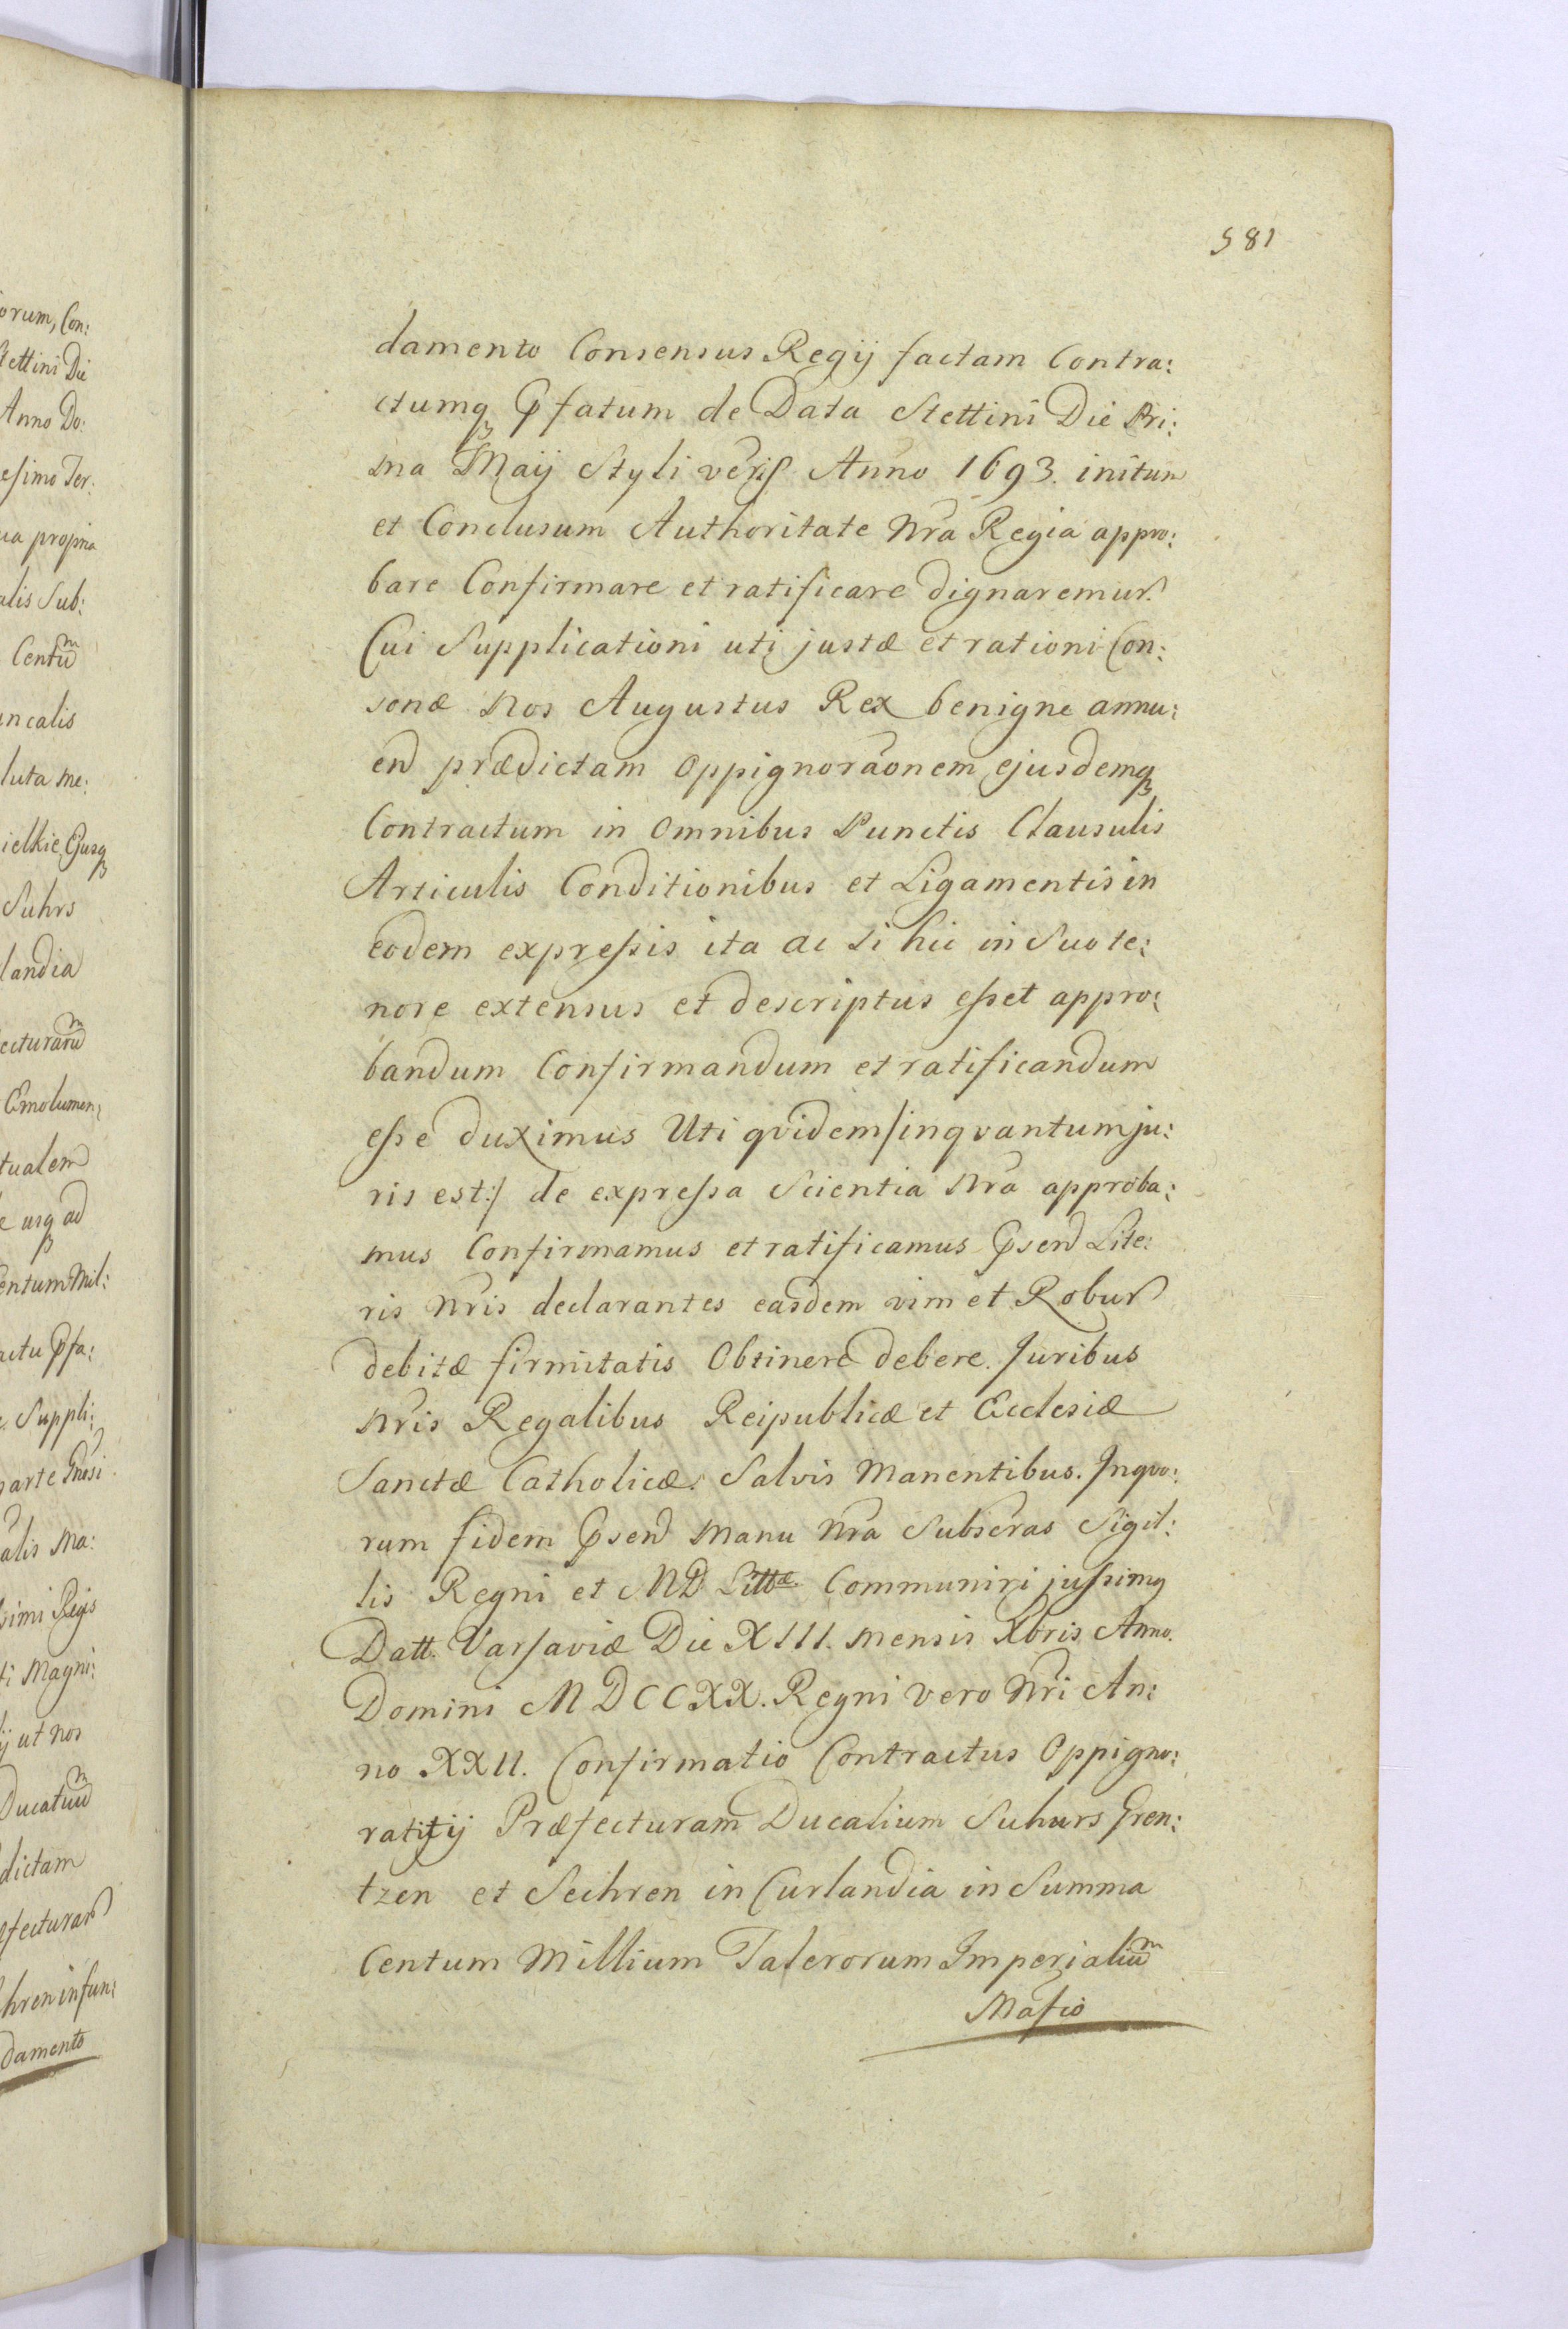 581
damento Consensus Regij factam Contra:
ctumq Pfatum de Data Stettini Die Pri:
ma Maij Styli veris Anno 1693. initum
et Conclusum Authoritate Nra Regia appro:
bare Confirmare et ratificare dignaremur.
Cui Supplicationi uti justæ et rationi Con:
sonæ nos Augustus Rex benigne annu:
end prædictam Oppignoraonem ejusdemq
Contractum in Omnibus Punctis Clausulis
Articulis Conditionibus et Ligamentis in
eodem expressis ita ac si hic in Suo te:
nore extensus et descriptus esset appro:
bandum Confirmandum et ratificandum
esse duximus Uti qvidem /inqvantum ju:
ris est:/ de expressa Scientia Nra approba:
mus Confirmamus et ratificamus Psend Lite:
ris Nris declarantes easdem vim et Robur
debitæ firmitatis Obtinere debere. Juribus
Nris Regalibus Reipublicæ et Ecclesiæ
Sanctæ Catholicæ. Salvis Manentibus. Inqvo:
rum fidem Psend Manu Nra Subscras Sigil:
lis Regni et MD Littæ Communiri jussimq
Datt. Varsaviæ Die XIII. Mensis Xbris Anno.
Domini MDCCXX. Regni vero Nri An:
no XXII. Confirmatio Contractus Oppigno:
ratitij Præfecturam Ducalium Suhurs Gren:
tzen et Seihren in Curlandia in Summa
Centum Millium Talerorum Imperialium